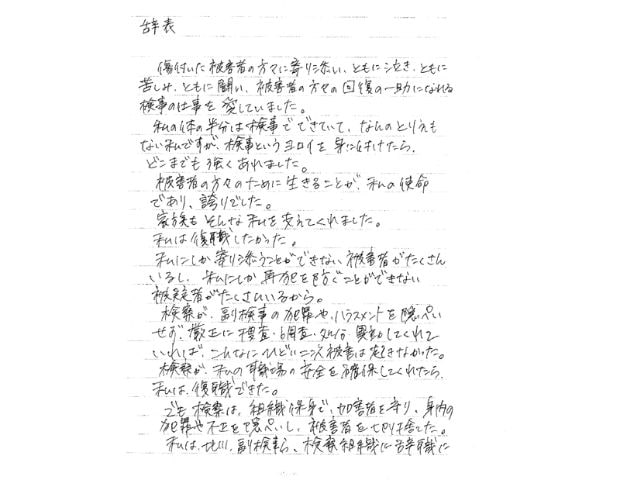 辞表
傷付いた被害者の方々に寄り添い、ともに泣き、ともに
苦しみ、ともに闘い、被害者の方々の回復の一助になれる
検事の仕事を愛していました。
私の体の半分は検事でできていて、なんのとりえも
ない私ですが、検事というヨロイを身に付けたら、
どこまでも強くあれました。
被害者の方々のために生きることが、私の使命
であり、誇りでした。
家族もそんな私を支えてくれました。
私は復職したかった。
私にしか寄り添うことができない被害者がたくさん
いるし、私にしか再犯を防ぐことができない
被疑者がたくさんいるから。
検察が、副検事の犯罪や、ハラスメントを隠ぺい
せず、厳正に捜査・調査・処分 してくれて
いれば、こんなにひどい二次被害は起きなかった。
検察が、私の職場の安全を確保してくれたら、
私は、復職できた。
でも検察は、組織保身で、加害者を守り、身内の
犯罪や不正を隠ぺいし、被害者を切り捨てた。
私は、北川、副検事ら、検察組織に辞職に